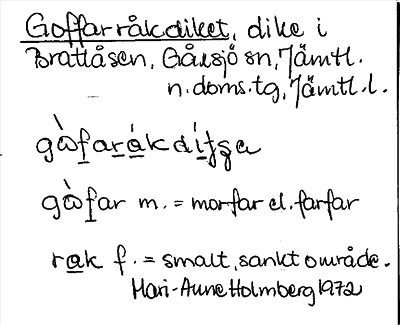 Goffarråkdiket, dike i
Brattåsen, Gåxsjö sn, Jämtl.
n.doms.tg, Jämtl.l.
gòfarákdítja
gòfar m. = morfar el. farfar
rak f. = smalt, sankt område.
Mari-Anne Holmberg 1972